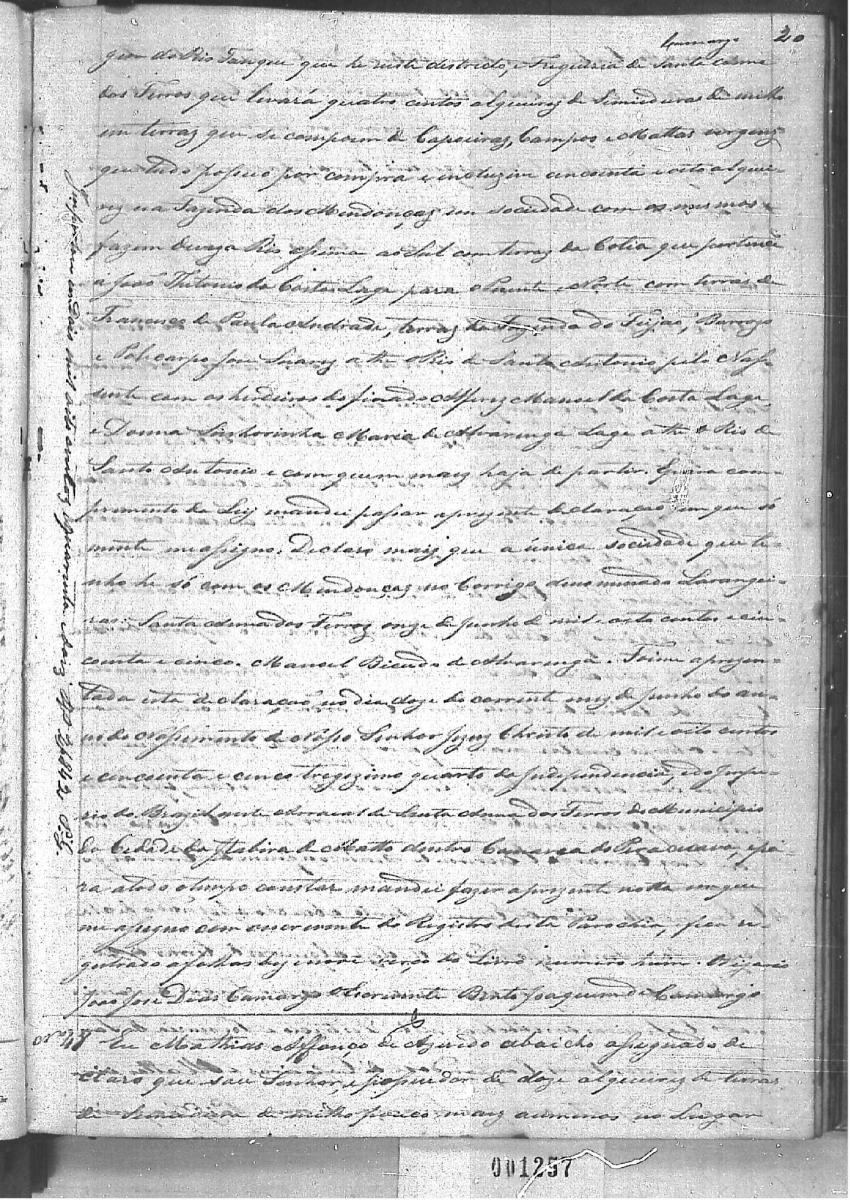 Camargo 20
gem do Rio Tanque que he neste districto, e Freguezia de Santa Anna
dos Ferros que levará quatro centos alqueires de Semeaduras de milho
em terras que se compoem de Capoeiras, Campos e Mattas virgens
que tudo possuo por compra e incluzive cincoenta e oito alquei-
res na Fazenda dos Mendonças em sociedade com os mesmos e
fazem Rio assima ao Sul com terras da Cotia que pertence
a João Thitonio da Costa Lage para o Poente e Norte com terras de
Francisco de Paula Andrade, terras da Fazenda do Feijao, Barrozo
e Policarpo Joze Soares athe o Rio de Santo Antonio pelo Nas-
sente com os herdeiros do finado Alferes Manoel da Costa Lage
e Donna Sinhorinha Maria de Alvarenga Lage athe o Rio de
Santo Antonio e com quem mais haja de partir. E para com-
primento da Ley mandei passar a prezente declaracao em que só
mente me assigno. Declaro mais que a única sociedade que te-
nho he só com os Mendonças no Corrigo denominado Larangei-
ras. Santa Anna dos Ferros onze de Junho de mil e oito centos e cin-
coenta e cinco. Manoel Bicudo de Alvarenga. Foi me aprezen-
tada esta declaração no dia doze do corrente mez de Junho do an-
no do Nassimento de Nósso Senhor Jezuz Christo de mil e oito centos
e cincoenta e cinco tregezimo quarto da Independencia, e do Impe-
rio do Brazil neste Arraial de Santa Anna dos Ferros do Municipio
da Cidade da Itabira de Matto dentro Comarca do Piracicava, e pa-
ra a todo o tempo constar mandei fazer a prezente notta em que
me assigno com o escrevente do Registro desta Parochia, fica re-
gistrado a folhas dezenove verço do Livro numero hum. O Vigario
João José Dias Camargo O Escrevente Bento Joaquim de Camargo
Nº 41 Eu Mathias Affonço de Azevedo abaicho assignado de
claro que sou Senhor, e possuidor de doze alqueires de terras
de Semeadura de milho pouco mais ou menos no Lugar
dous mil oito centos quarenta e dous Rs 2$842
001257